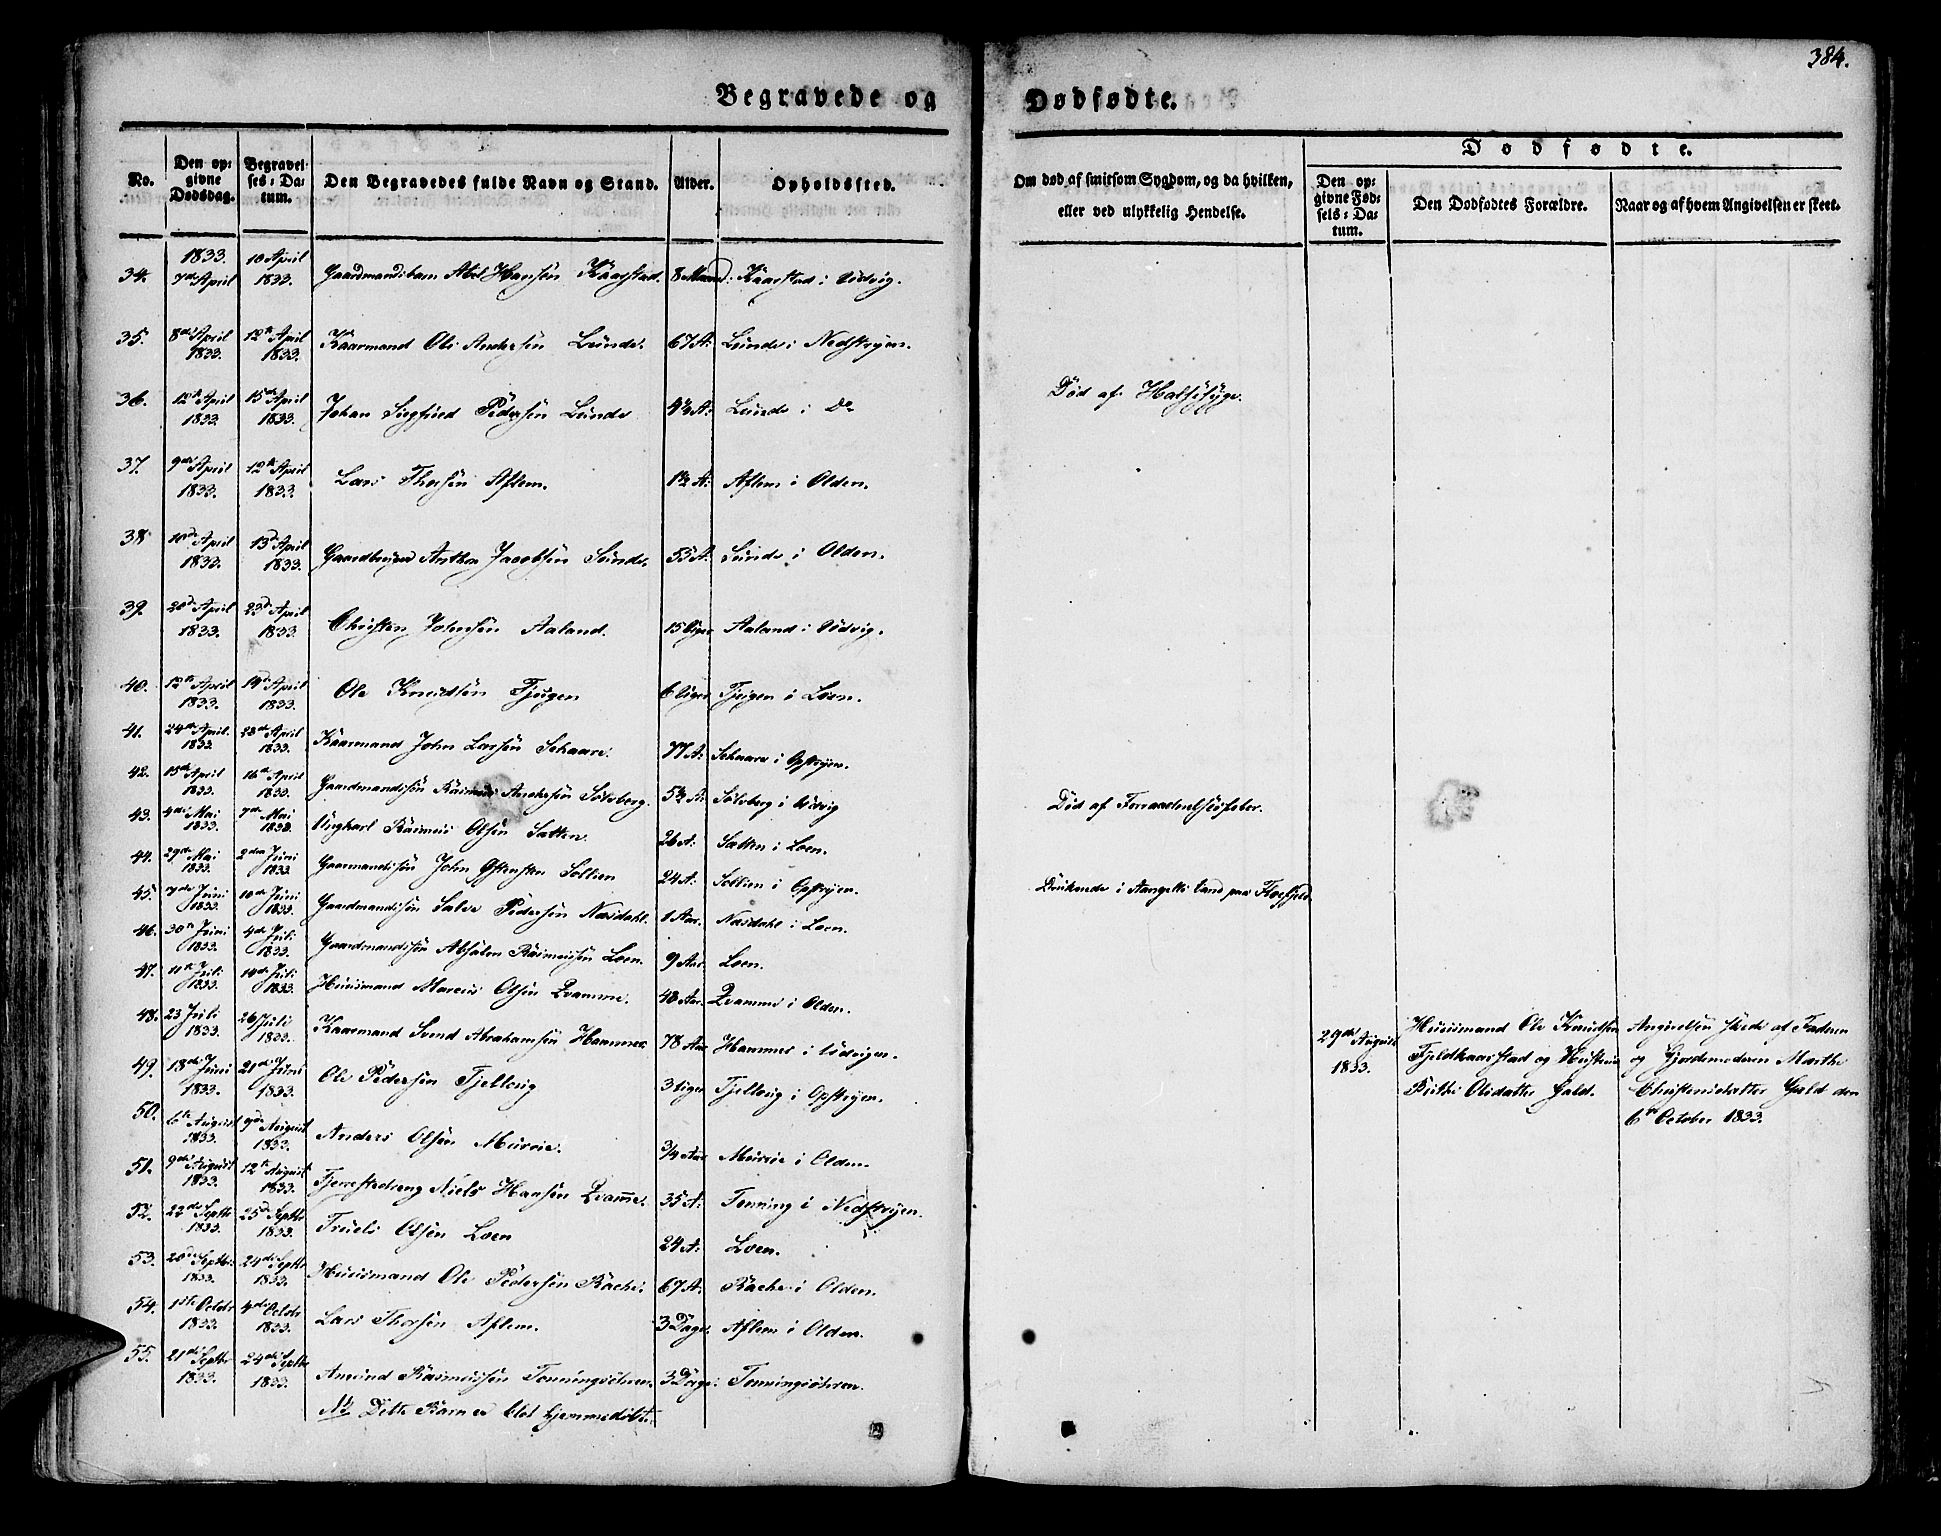 384.
Begravede og Dødfødte.
No. Den opgivne Dødsdag. Begravelses-Datum. Den Begravedes fulde Navn og Stand. Alder. Opholdssted. Om død af smitsom Sygdom, og da hvilken, eller ved ulykkelig Hendelse.
Dødfødte.
Den opgivne Fødsels-Datum. Den Dødfødtes Forældre. Naar og af hvem Angivelsen er skeet.
34. 1833. 7de April 10 April 1833. Gaardmandsbarn Abel Hansen Kaarstad. 8 Maaned: Kaarstad i Udvig.
35. 8de April 1833. 12te April 1833. Kaarmand Ole Andersen Lunde. 67 A: Lunde i Nedstryen.
36. 12te April 1833. 15de April 1833. Johan Sigfried Pedersen Lunde 4½ A: Lunde i Do Død af Halsesyge.
37. 9de April 1833. 12te April 1833. Lars Thorsen Aflem. 1½ A: Aflem i Olden.
38 10d April 1833. 13d April 1833. Gaardbruger Anthon Jacobsen Sunde. 53 A. Sunde i Olden.
39. 20d April 1833. 23d April 1833. Christen Johnsen Aaland. 15 Uger Aaland i Udvig.
40. 12te April 1833. 14d April 1833. Ole Knudsen Tjugen 6 Uger Tjugen i Loen.
41. 24de April. 1833 28de April 1833. Kaarmand John Larsen Schaare. 77 A: Schaare i Opstryen.
42. 15de April 1833. 16de April 1833. Gaardmandssøn Rasmus Andersen Solvberg. 5½ A: Solvberg i Udvig Død af Forraadnelsesfeber.
43. 4de Mai 1833. 7de Mai 1833. Ungkarl Rasmus Olsen Sætten. 26 A: Sætten i Loen.
44. 29de Mai 1833. 2den Juni 1833. Gaarmandssøn John Ostensen Sollien 24 A: Sollien i Opstryen. Druknede i land paa
45. 7de Juni 1833. 10de Juni 1833. Gaardmandssøn Salve Pedersen Næsdahl. 1 Aar. Næsdahl i Loen.
46. 30te Juni 1833. 4de Juli 1833. Gaardmandssøn Absalon Rasmussen Loen. 9 Aar. Loen.
47. 11te Juli 1833. 14de Juli 1833. Huusmand Marcus Olsen Qvamme. 48 Aar. Qvamme i Olden.
48. 23 Juli 1833. 26 Juli 1833. Kaarmand Svend Abrahamsen Hammer 78 Aar Hammer i Udvigen.
49. 18de Juni 1833. 21de Juni 1833. Ole Pedersen Tjellaug 3 Uger Tjellaug i Opstryen.
50. 6te August 1833. 9de August 1833. Anders Olsen Murrie. 3/4 Aar Murrie i Olden.
51. 9de August 1833. 12te August 1833. Fjerrestedreng Niels Hansen Qvamme. 35 A: Tonning i Nedstryen.
52. 22de Septbr 1833. 25de Septbr 1833. Truels Olsen Loen 24 A: Loen.
53. 20de Septbr. 1833. 24de Septbr 1833. Huusmand Ole Pedersen Rache. 67 A: Rache i Olden.
54. 1ste Octobr 1833. 4de Octobr 1833. Lars Thorsen Aflem. 3 Dage. Aflem i Olden.
55. 21de Septbr 1833. 24de Septbr 1833. Amund Rasmussen Tonningsøeren. 3 Dage. Tonningsøeren.
Nb Dette Barn er blot hjemmedøbt.
29de August 1833. Huusmand Ole Knudsen Fjeldkaarstad og Hustrue Birthe Olsdatter Gald. Angivelsen skede af Faderen og Gjordemoderen Marthe Christensdatter Gald den 6te October 1833.